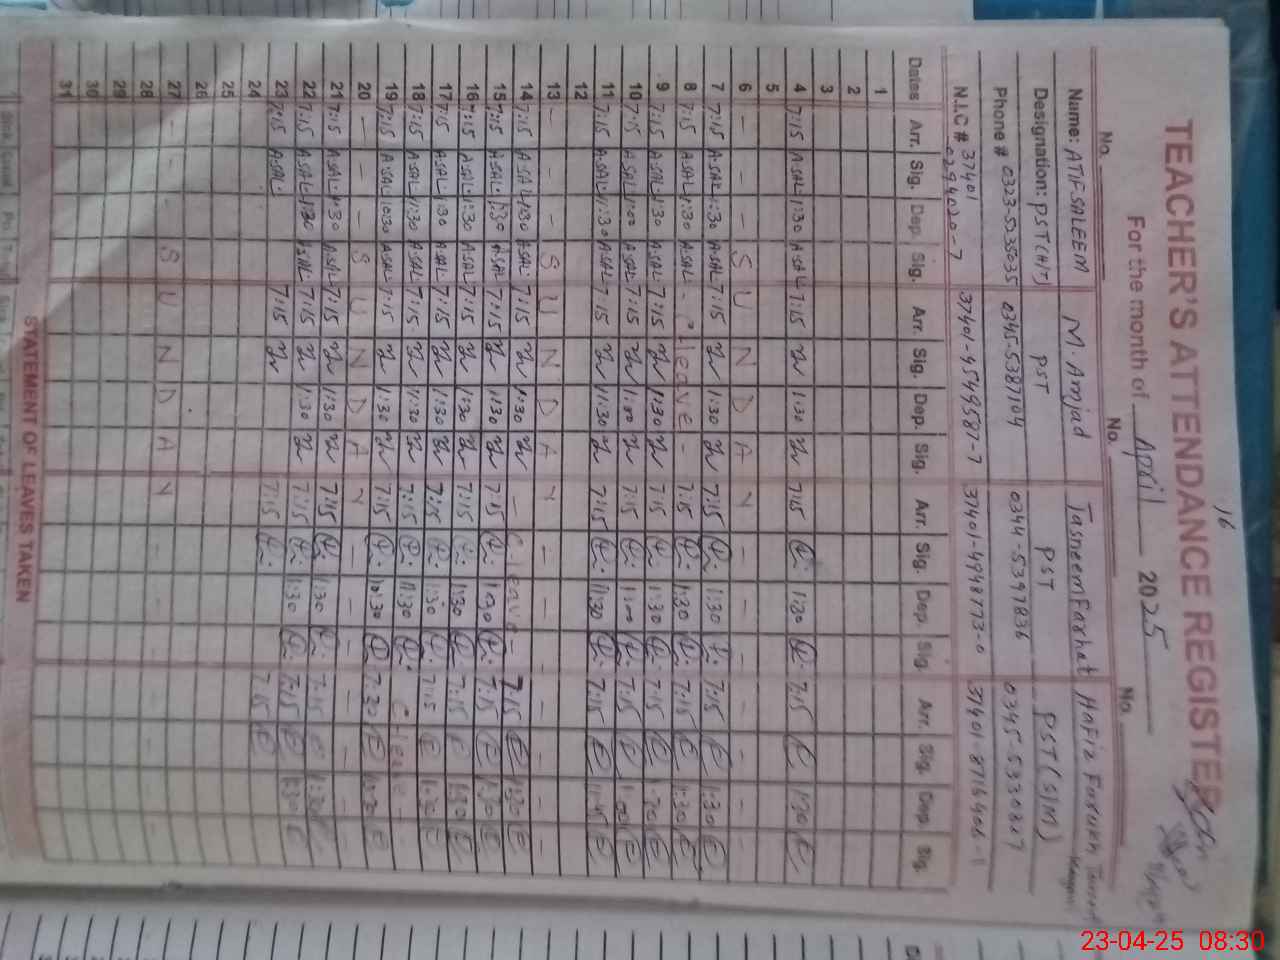 16
TEACHER'S ATTENDANCE REGISTER
For the month of April 2025
No. No. No.
Name: ATIF SALEEM M. Amjad Tasneem Farhat Hafiz Farrukh
Designation: PST(H/T) PST PST PST(SIM)
Phone # 0323-5235035 0345-5387104 0344-5397836 0345-5330807
N.I.C # 37401 37401-9549587-7 37401-4948773-0 37401-8716406-1
0294020-7
Dates Arr. Sig. Dep. Sig. Arr. Sig. Dep. Sig. Arr. Sig. Dep. Sig. Arr. Sig. Dep. Sig.
1
2
3
4 7:15 A·SAL 1:30 A·SAL 7:15 1:30 7:15 1:30 7:15 1:30
5
6 - - - S U N D A Y - - - - - - -
7 7:15 A·SAL 1:30 A·SAL 7:15 1:30 7:15 1:30 7:15 1:30
8 7:15 A·SAL 1:30 A·SAL - C leave - 7:15 1:30 7:15 1:30
9 7:15 A·SAL 1:30 A·SAL 7:15 1:30 7:15 1:30 7:15 1:30
10 7:15 A·SAL 1:00 A·SAL 7:15 1:00 7:15 1:00 7:15 1:00
11 7:15 A·SAL 11:30 A·SAL 7:15 11:30 7:15 11:30 7:15 11:45
12
13 - - - S U N D A Y - - - - - - -
14 7:15 A·SAL 1:30 A·SAL 7:15 1:30 - C leave - 7:15 1:30
15 7:15 A·SAL 1:30 A·SAL 7:15 1:30 7:15 1:30 7:15 1:30
16 7:15 A·SAL 1:30 A·SAL 7:15 1:30 7:15 1:30 7:15 1:30
17 7:15 A·SAL 1:30 A·SAL 7:15 1:30 7:15 1:30 7:15 1:30
18 7:15 A·SAL 11:30 A·SAL 7:15 11:30 7:15 11:30 C leave -
19 7:15 A·SAL 10:30 A·SAL 7:15 10:30 7:15 10:30 7:30 10:30
20 - - - S U N D A Y - - - -
21 7:15 A·SAL 1:30 A·SAL 7:15 1:30 7:15 1:30 7:15 1:30
22 7:15 A·SAL 1:30 A·SAL 7:15 1:30 7:15 1:30 7:15 1:30
23 7:15 A·SAL 7:15 7:15 7:15
24
25
26
27 - - - S U N D A Y - - - -
28
29
30
31
STATEMENT OF LEAVES TAKEN
23-04-25 08:30